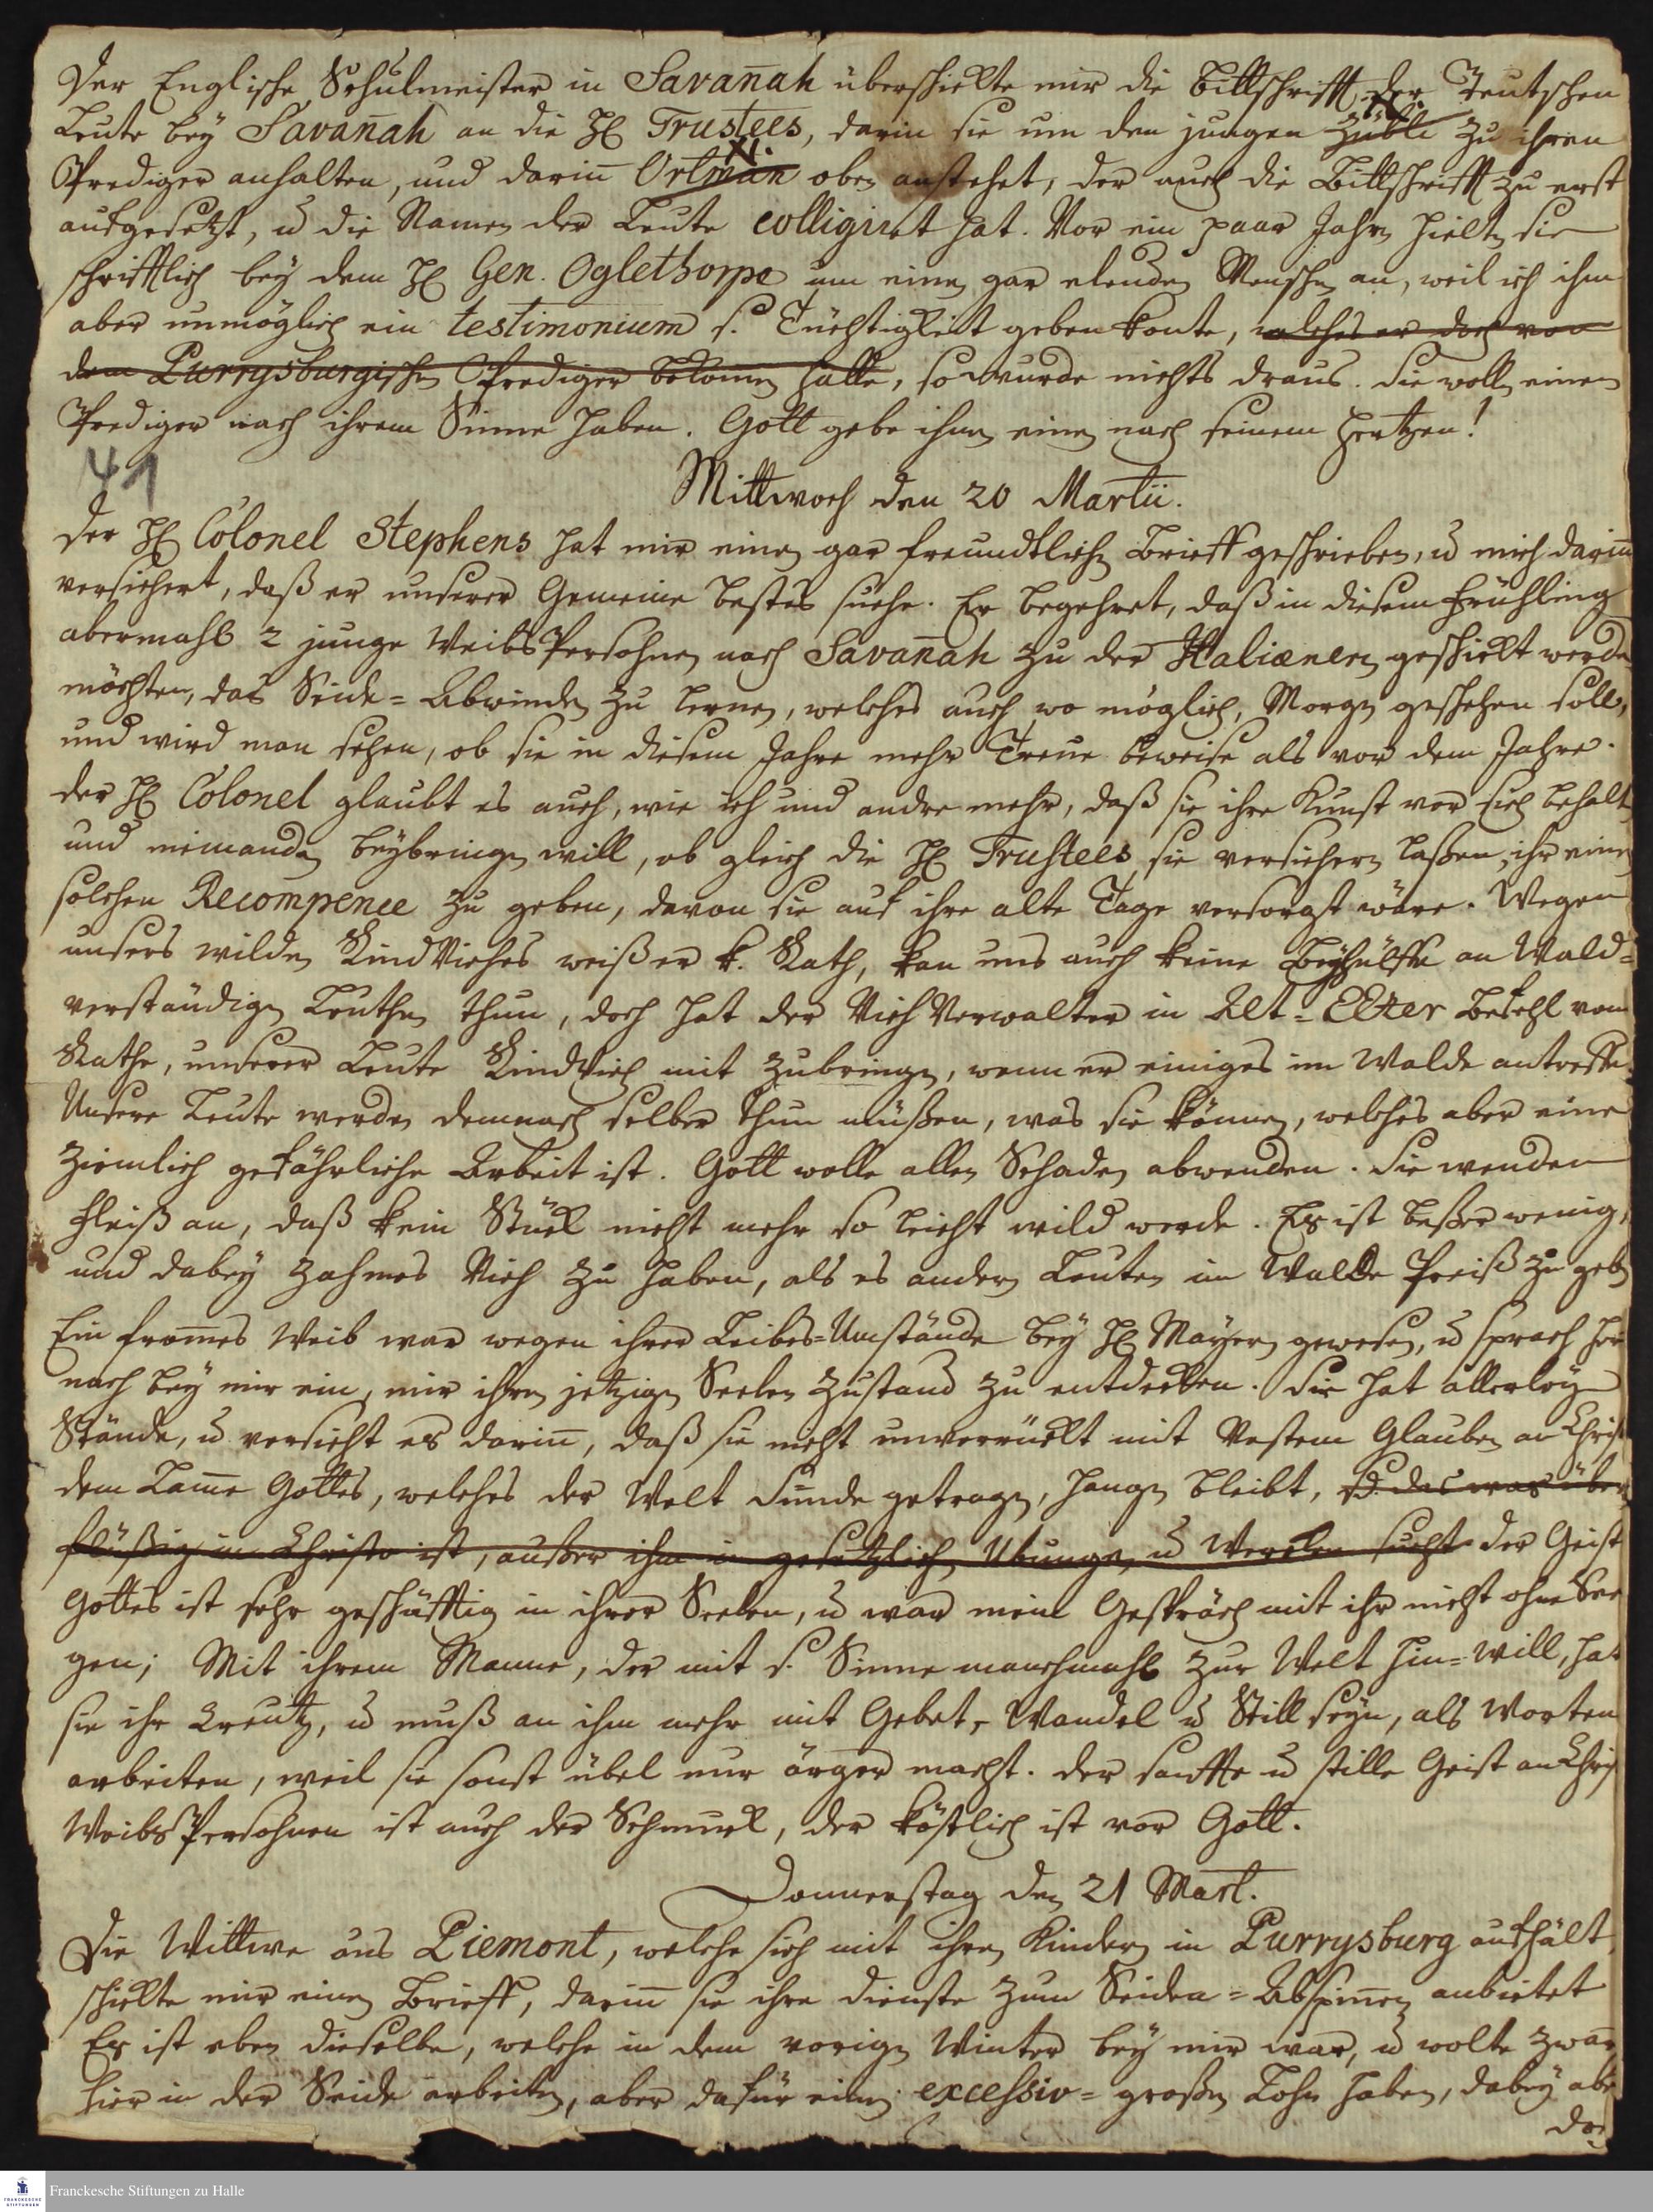 Der Englische Schulmeister in Savanah überschickte mir die Bittschrifft der Teutschen
Leute bey Savanah an die H Trustees, darin sie um den jungen Zübli zu ihren
Prediger anhalten, und darin Ortman oben anstehet, der auch die Bittschrifft zu erst
aufgesetzt, u die Namen der Leute colligirt hat. Vor ein paar Jahren hielten sie
schrifftlich bey dem H Gen. Oglethorpe um einen gar elenden Menschen an, weil ich ihm
aber unmöglich ein testimonium s. Tüchtigkeit geben konte, welches er doch von
dem Purrysburgischen Prediger bekomen hatte, so wurde nichts draus. Sie wollen einen
Prediger nach ihrem Sinne haben. Gott gebe ihnen einen nach seinem Hertzen!
41
Mittwoch den 20 Martii.
Der H Colonel Stephens hat mir einen gar freundtlichen Brieff geschrieben, u mich darin
versichert, daß er unserer Gemeine bestes suche. Er begehret, daß in diesem Frühling
abermahls 2 junge WeibsPersohnen nach Savanah zu der Italiænerin geschickt werden
möchten, das Seide-Abwinden zu lernen, welches auch wo möglich, Morgen geschehen soll,
und wird man sehen, ob sie in diesem Jahre mehr Treue beweise als vor dem Jahre.
Der H Colonel glaubt es auch, wie ich und andre mehr, daß sie ihre Kunst vor sich behalten
und niemanden beybringen will, ob gleich die H Trustees sie versichern laßen, ihr eine
solchen Recompence zu geben, davon sie auf ihre alte Tage versorgt wäre. Wegen
unsers wilden RindViehes weiß er k. Rath, kan uns auch keine Beyhülffe an Wald-
verständigen Leuthen thun, doch hat der ViehVerwalter in Alt-Ebenezer Befehl vom
Rathe, unserer Leute RindVieh mit zubringen, wenn er einiges im Walde antreffe.
Unsere Leute werden demnach selber thun müßen, was sie können, welches aber eine
ziemlich gefährliche Arbeit ist. Gott wolle allen Schaden abwenden. Sie wenden
Fleiß an, daß kein Stück nicht mehr so leicht wild werde. Es ist beßer wenig,
und dabey zahmes Vieh zu haben, als es andern Leuten im Walde Preiß zu geben
Ein fromes Weib war wegen ihrer Leibes-Umstände bey H Mayern gewesen, u sprach her
nach bey mir ein, mir ihren jetzigen Seelen Zustand zu entdecken. Sie hat allerley
Stände, u versieht es darin, daß sie nicht unverrückt mit Vestem Glauben an Christo
dem Lamme Gottes, welches der Welt Sünde getragen, hangen bleibt, das was über
flüßig in Christo ist, außer ihm in gesetzlichen Übungen u Wercken sucht. Der Geist
Gottes ist sehr geschäfftig in ihrer Seelen, u war mein Gespräch mit ihr nicht ohne See
gen; Mit ihrem Manne, der mit s. Sinne manchmahls zur Welt hin-will, hat
sie ihr Creutz, u muß an ihm mehr mit Gebet, Wandel u Still seyn, als Worten
arbeiten, weil sie sonst übel nur ärger macht. Der sanffte u stille Geist an Christ
WeibsPersohnen ist auch der Schmuck, der köstlich ist vor Gott.
Donnerstag den 21 Mart.
Die Wittwe aus Piemont, welche sich mit ihren Kindern in Purrysburg aufhält,
schickte mir einen Brieff, darin sie ihre Dienste zum Seiden-Abspinnen anbietet
Es ist eben dieselbe, welche in dem vorigen Winter bey mir war, u wolte zwar
hier in der Seide arbeiten, aber dafür einen excessiv-großen Lohn haben, dabey aber
Franckesche Stiftungen zu Halle
FRANCKESCHE
STIFTUNGEN